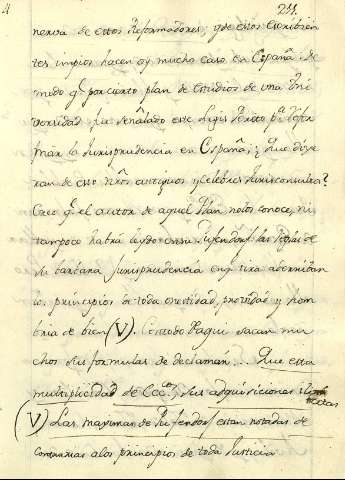 4
211.
nerva de estos Reformadores; y de estos escribien
tes impios hacen oy mucho caso en España: de
modo q.e por cierto plan de estudios de una Uni
versidad, se señala este p.a
mar la Jurisprudencia en España; ¿ Que dixe
ran de esto nros antiguos, y celebres Jurisconsultos?
Creo q.e el autor de aquel Plan, no los conoce, ni
tampoco habrá leydo en su Pufendorf las Reglas de
su barbara Jurisprudencia en q.e
los principios de toda probidad, y hom
bria de bien (V). Con todo de aqui sacan mu
chos sus formulas de declamar... Que esta
multiplicidad de sus adquisiciones
(V) Las maximas de Pufendorf estan notadas de
contrarias a los principios de toda Justicia